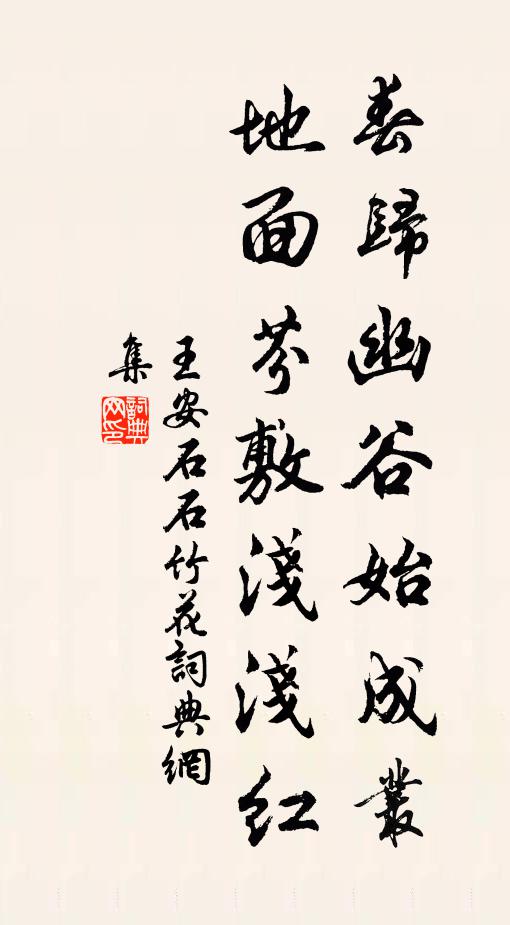 春歸幽谷始成叢
地面芬敷淺淺红
王安石石竹花詞典網
集
詞典网印